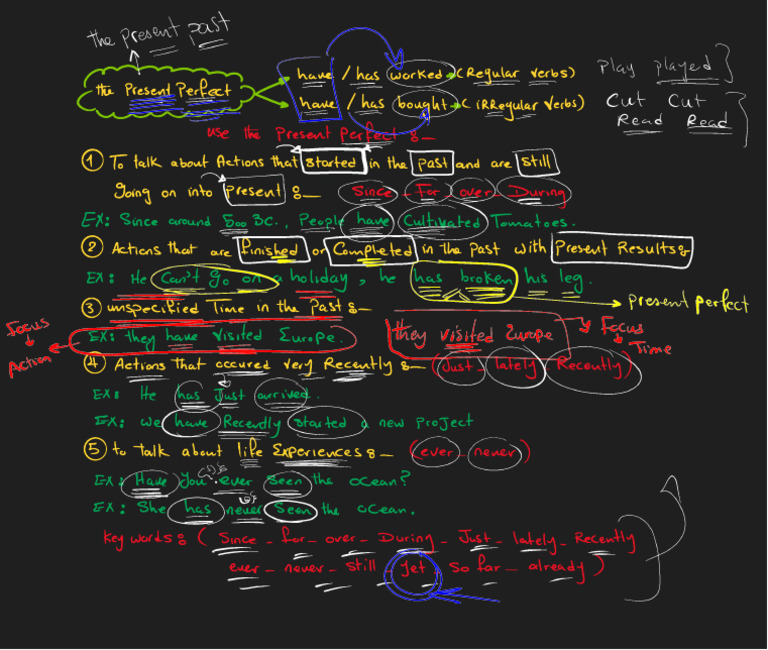 the present past
the Present Perfect
have / has worked → (Regular verbs)
have / has bought → (iRRegular verbs)
Play played
Cut Cut
Read Read
use the Present Perfect :-
① To talk about Actions that started in the past and are still
going on into present :- Since - For - over - During
EX: Since around 500 BC., People have Cultivated Tomatoes.
② Actions that are finished or Completed in the past with Present Results:
EX: He Can't go on a holiday, he has broken his leg.
→ present perfect
③ unspecified Time in the past :-
Focus
Action
EX: they have visited Europe.
they visited Europe
Focus
Time
④ Actions that occured very Recently :- (Just - lately - Recently)
EX: He has Just arrived.
EX: we have Recently started a new project
⑤ to talk about life Experiences :- (ever - never)
EX: Have you ever seen the ocean?
EX: She has never Seen the ocean.
key words: (Since - for - over - During - Just - lately - Recently
ever - never - still - yet - so far - already)